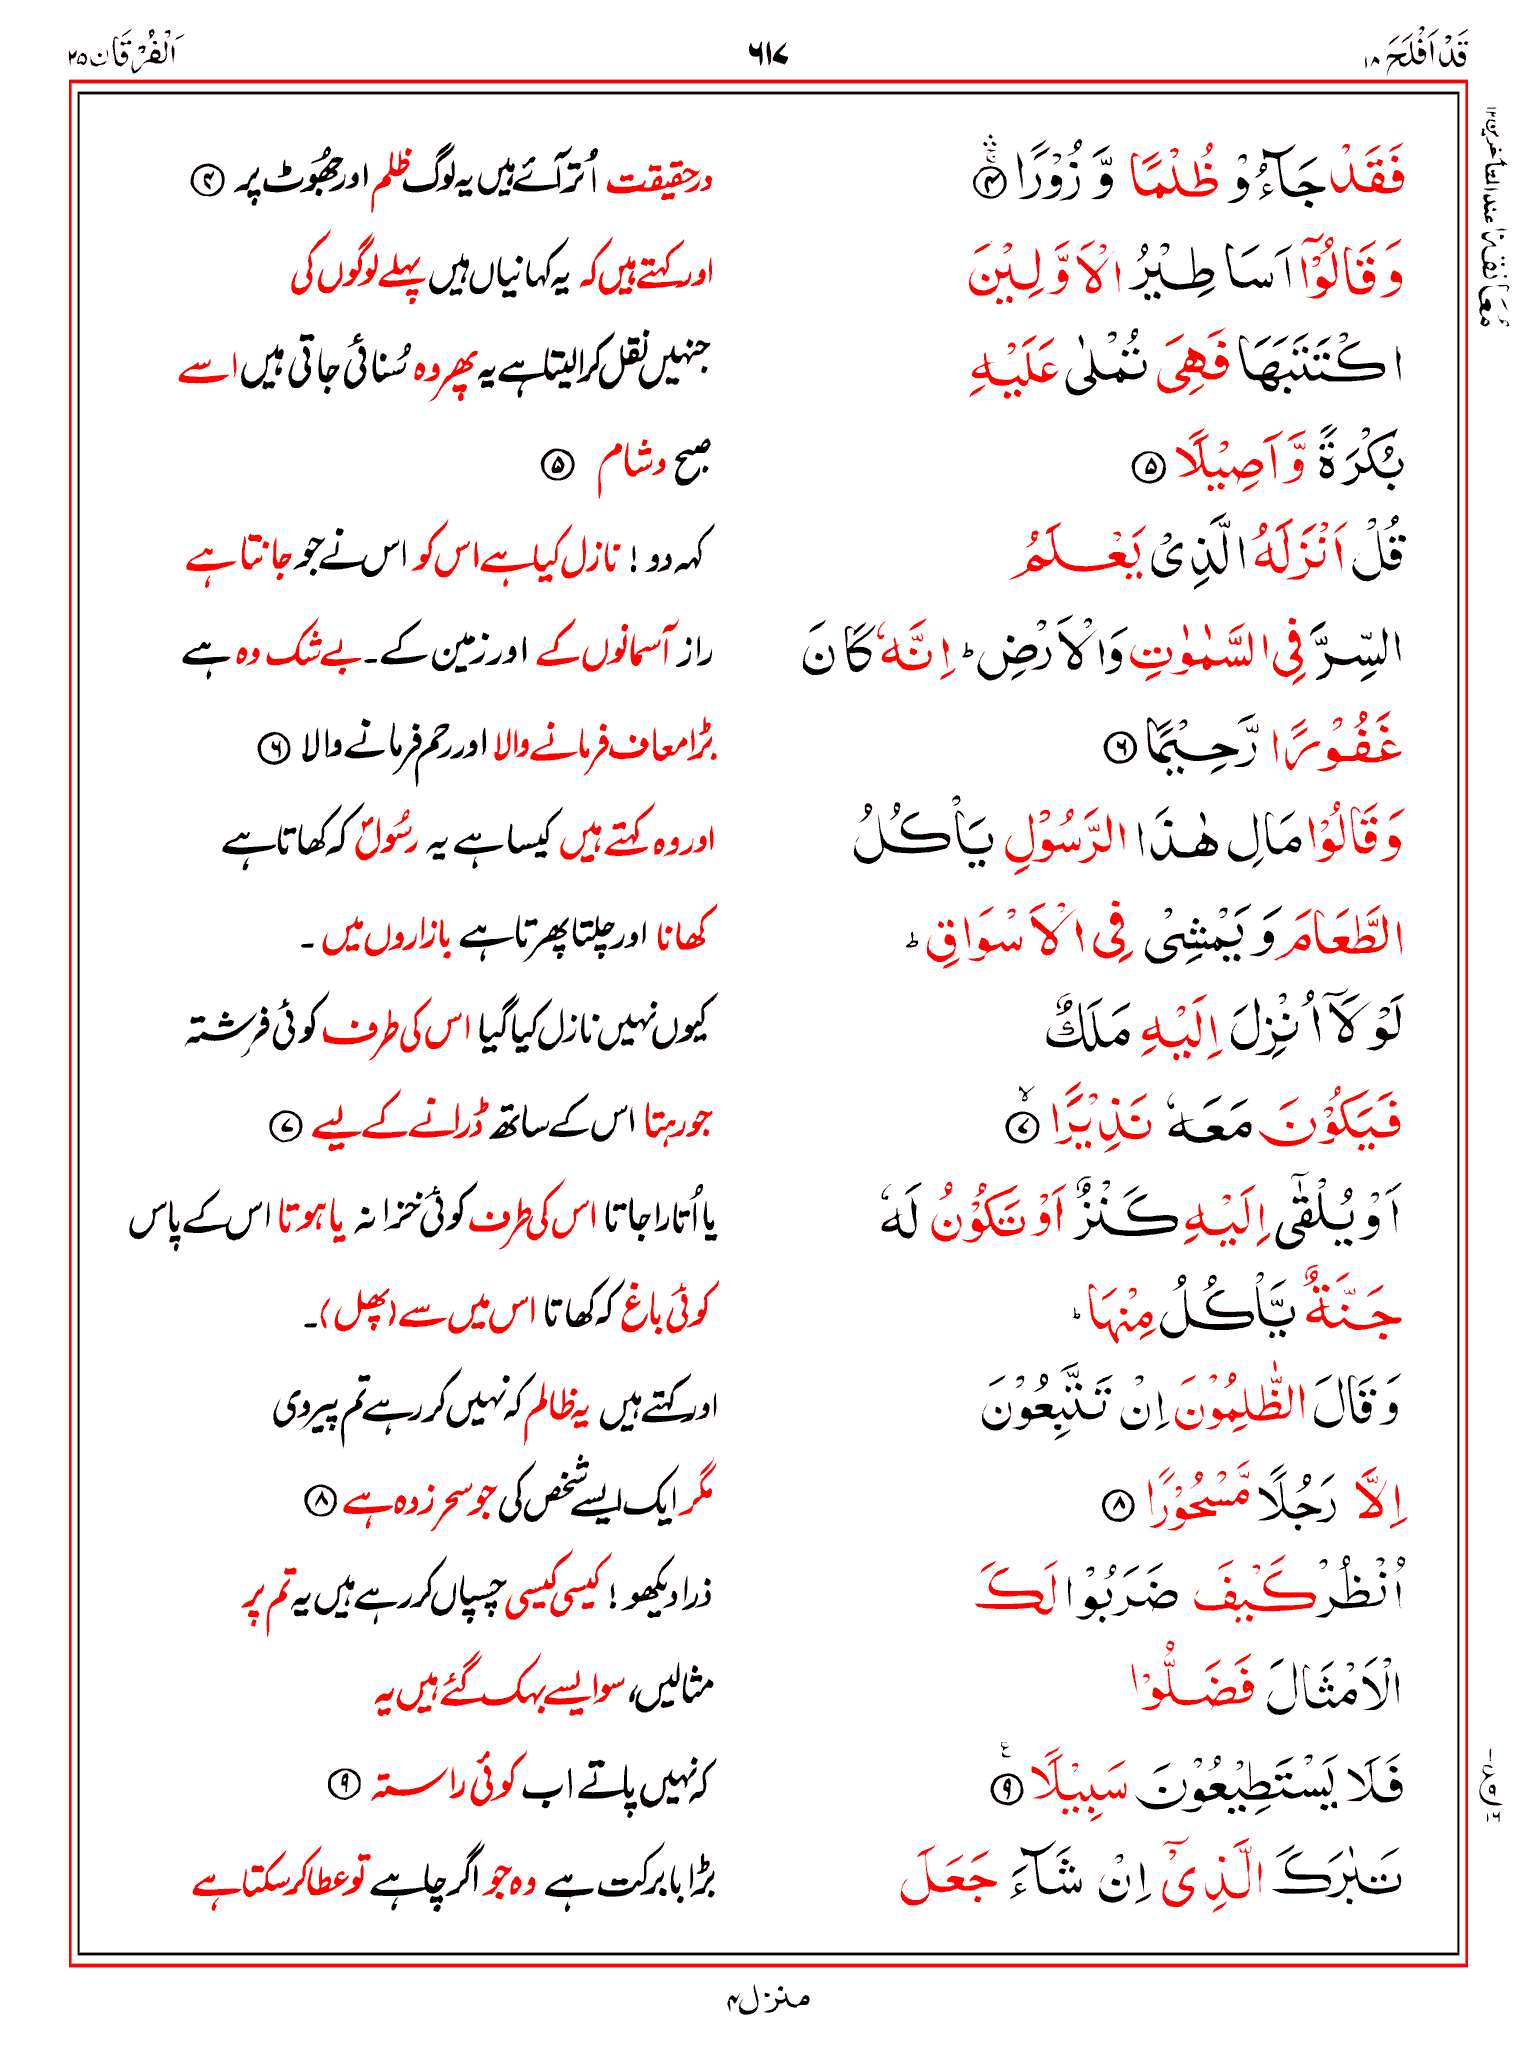 قَدْ اَفْلَحَ ۱۸ ۶۱۷ اَلْفُرْقَان ۲۵
فَقَدْ جَآءُوْ ظُلْمًا وَّ زُوْرًا ۴ درحقیقت اُتر آئے ہیں یہ لوگ ظلم اور جھُوٹ پر ۴
وَقَالُوْۤا اَسَاطِيْرُ الْاَوَّلِيْنَ اور کہتے ہیں کہ یہ کہانیاں ہیں پہلے لوگوں کی
اكْتَتَبَهَا فَهِيَ تُمْلٰى عَلَيْهِ جنہیں نقل کرالیتا ہے یہ پھر وہ سُنائی جاتی ہیں اسے
بُكْرَةً وَّاَصِيْلًا ۵ صبح و شام ۵
قُلْ اَنْزَلَهُ الَّذِيْ يَعْلَمُ کہہ دو! نازل کیا ہے اس کو اس نے جو جانتا ہے
السِّرَّ فِي السَّمٰوٰتِ وَالْاَرْضِ ؕ اِنَّهٗ كَانَ راز آسمانوں کے اور زمین کے۔ بے شک وہ ہے
غَفُوْرًا رَّحِيْمًا ۶ بڑا معاف فرمانے والا اور رحم فرمانے والا ۶
وَقَالُوْا مَالِ هٰذَا الرَّسُوْلِ يَاْكُلُ اور وہ کہتے ہیں کیسا ہے یہ رسُولؐ کہ کھاتا ہے
الطَّعَامَ وَيَمْشِيْ فِي الْاَسْوَاقِ ؕ کھانا اور چلتا پھرتا ہے بازاروں میں ۔
لَوْلَاۤ اُنْزِلَ اِلَيْهِ مَلَكٌ کیوں نہیں نازل کیا گیا اس کی طرف کوئی فرشتہ
فَيَكُوْنَ مَعَهٗ نَذِيْرًا ۷ۙ جو رہتا اس کے ساتھ ڈرانے کے لیے ۷
اَوْ يُلْقٰۤى اِلَيْهِ كَنْزٌ اَوْ تَكُوْنُ لَهٗ یا اُتارا جاتا اس کی طرف کوئی خزانہ یا ہوتا اس کے پاس
جَنَّةٌ يَّاْكُلُ مِنْهَا ؕ کوئی باغ کہ کھاتا اس میں سے (پھل)۔
وَقَالَ الظّٰلِمُوْنَ اِنْ تَتَّبِعُوْنَ اور کہتے ہیں یہ ظالم کہ نہیں کر رہے تم پیروی
اِلَّا رَجُلًا مَّسْحُوْرًا ۸ مگر ایک ایسے شخص کی جو سحر زدہ ہے ۸
اُنْظُرْ كَيْفَ ضَرَبُوْا لَكَ ذرا دیکھو! کیسی کیسی چسپاں کر رہے ہیں یہ تم پر
الْاَمْثَالَ فَضَلُّوْا مثالیں، سو ایسے بہک گئے ہیں یہ
فَلَا يَسْتَطِيْعُوْنَ سَبِيْلًا ۹ ع کہ نہیں پاتے اب کوئی راستہ ۹
تَبٰرَكَ الَّذِيْۤ اِنْ شَآءَ جَعَلَ بڑا بابرکت ہے وہ جو اگر چاہے تو عطا کر سکتا ہے
مُعَانقة عند المتأخرين ۱۲
ع ۹ ۱۶
منزل ۴